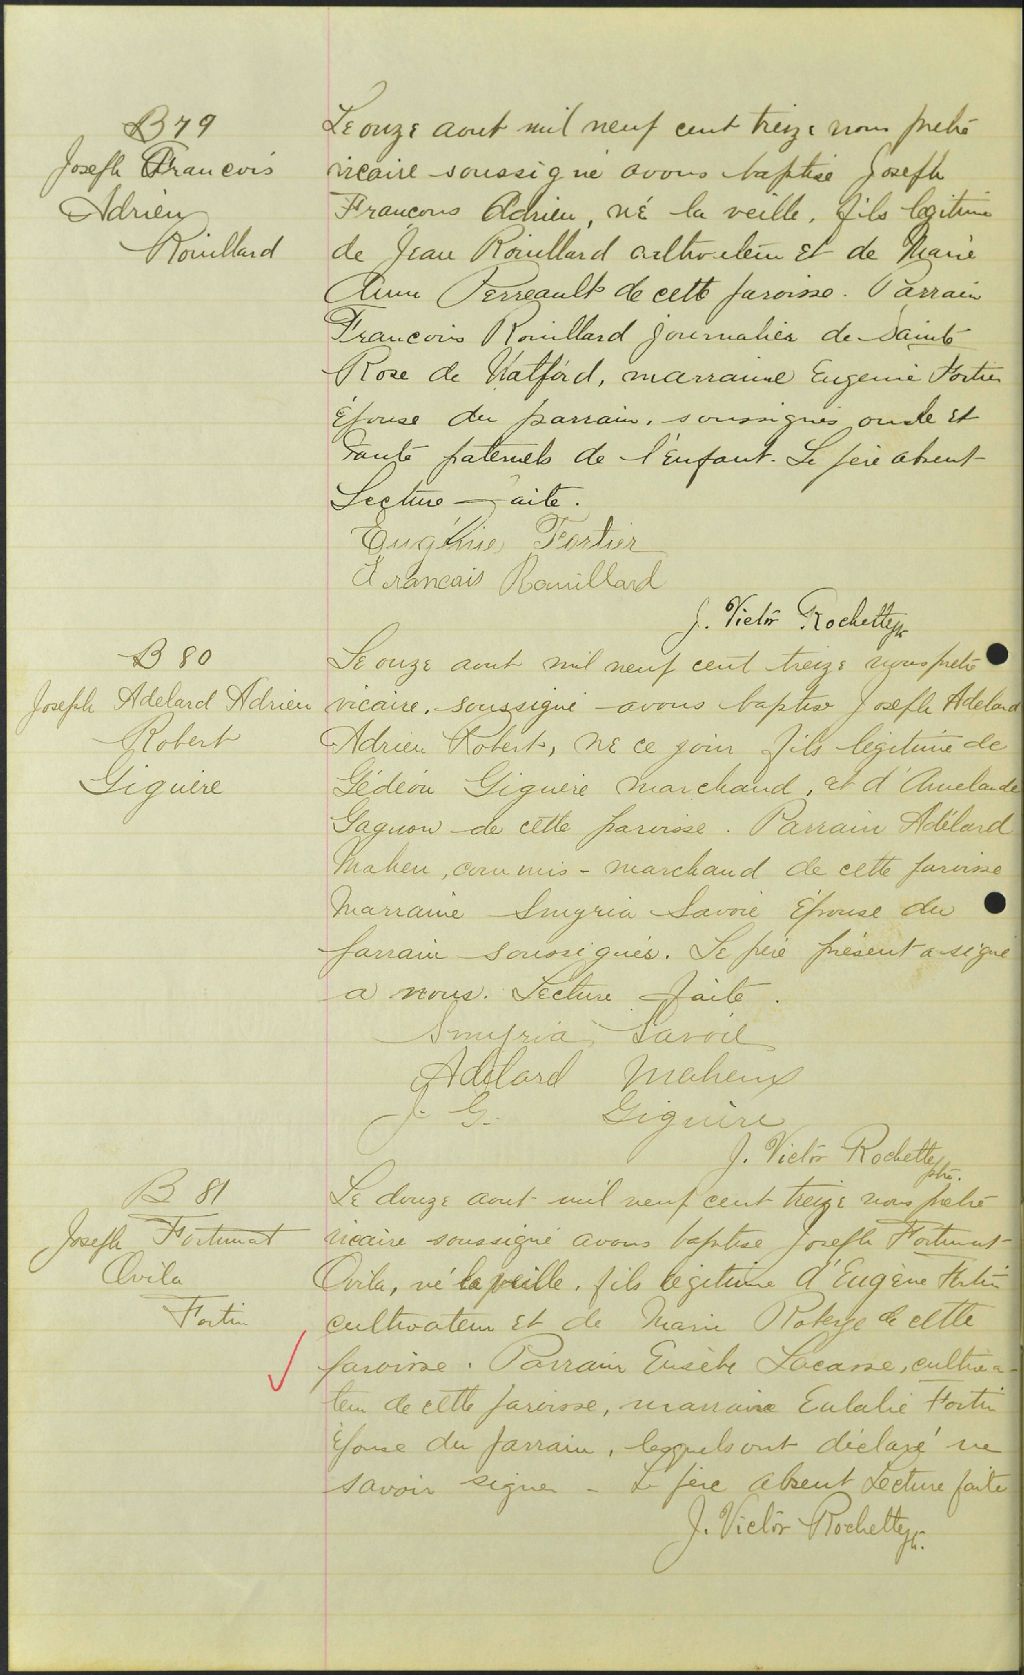 B 79
Joseph Francois
Adrien
Rouillard
Le onze aout mil neuf cent treize nous prêtre
vicaire soussigné avons baptisé Joseph
Francois Adrien, né la veille, fils légitime
de Jean Rouillard cultivateur et de Marie
Anna Perreault de cette paroisse. Parrain
Francois Rouillard journalier de Sainte
Rose de Watford, marraine Eugenie Fortier
Épouse du parrain, soussignés oncle et
tante paternels de l'Enfant. Le père absent
Lecture faite.
Eugénie Fortier
Francais Rouillard
J. Victor Rochette ptr.
B 80
Joseph Adelard Adrien
Robert
Giguère
Le onze aout mil neuf cent treize nous prêtre
vicaire, soussigné avons baptisé Joseph Adelard
Adrien Robert, né ce jour fils légitime de
Gédéon Giguère marchand, et d'
Gagnon de cette paroisse. Parrain Adélard
Maheu, commis-marchand de cette paroisse
Marraine Smyria Savoie Épouse du
parrain soussignés. Le père présent a signé
a nous. Lecture faite.
Smyria Savoie
Adélard Maheux
J. G. Giguère
J. Victor Rochette ptre.
B 81
Joseph Fortunat
Ovila
Fortin
Le douze aout mil neuf cent treize nous prêtre
vicaire soussigné avons baptisé Joseph Fortunat
Ovila, né la veille, fils légitime d'Eugène Fortin
cultivateur et de Marie de cette
paroisse. Parrain Eusèbe Lacasse, cultiva-
teur de cette paroisse, marraine Eulalie Fortin
épouse du parrain, lesquels ont déclaré ne
savoir signer - Le père absent Lecture faite
J. Victor Rochette ptr.